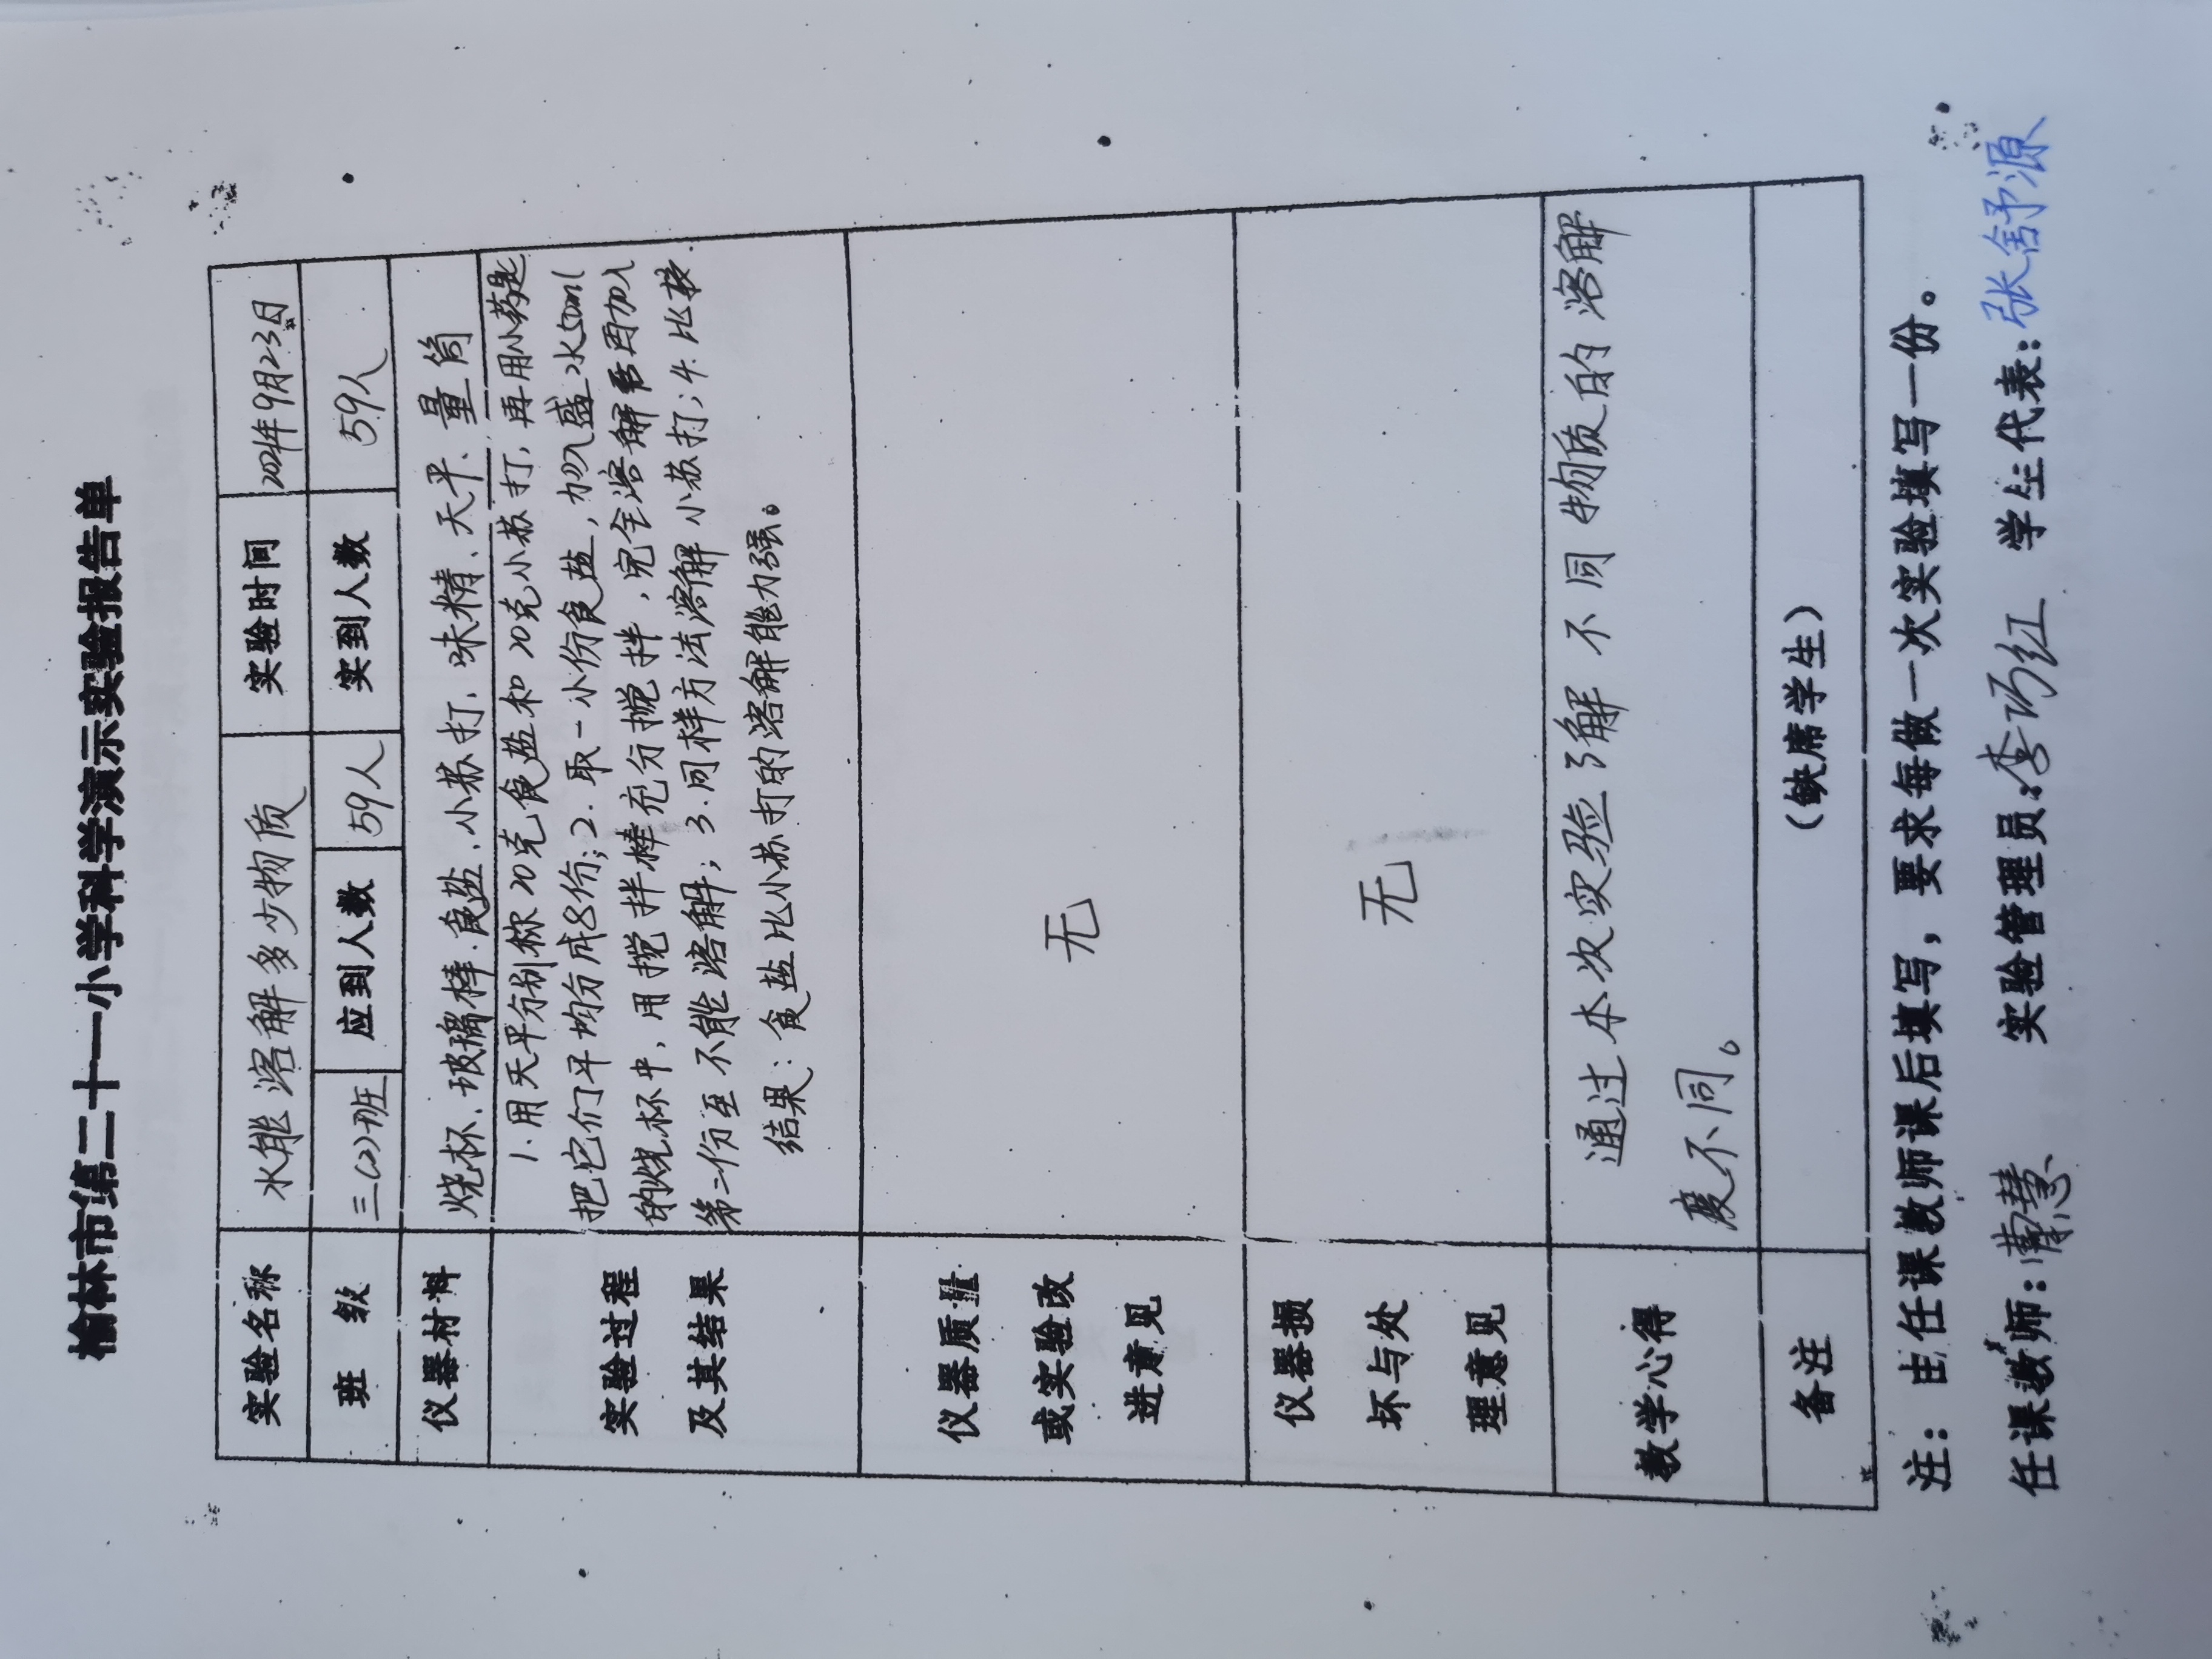 榆林市第二十一小学科学演示实验报告单
实验名称 水能溶解多少物质 实验时间 2021年9月23日
班 级 三(2)班 应到人数 59人 实到人数 59人
仪器材料 烧杯、玻璃棒、食盐、小苏打、味精、天平、量筒
实验过程
及其结果
1.用天平分别称20克食盐和20克小苏打,再用小药匙
把它们平均分成8份;2.取一小份食盐,加入盛水50ml
的烧杯中,用搅拌棒充分搅拌,完全溶解后再加入
第二份至不能溶解;3.同样方法溶解小苏打;4.比较.
结果:食盐比小苏打的溶解能力强。
仪器质量
或实验改
进意见
无
仪器损
坏与处
理意见
无
教学心得
通过本次实验了解不同物质的溶解
度不同。
备注 (缺席学生)
注:由任课教师课后填写,要求每做一次实验填写一份。
任课教师: 慧 实验管理员:李巧红 学生代表:张舒源